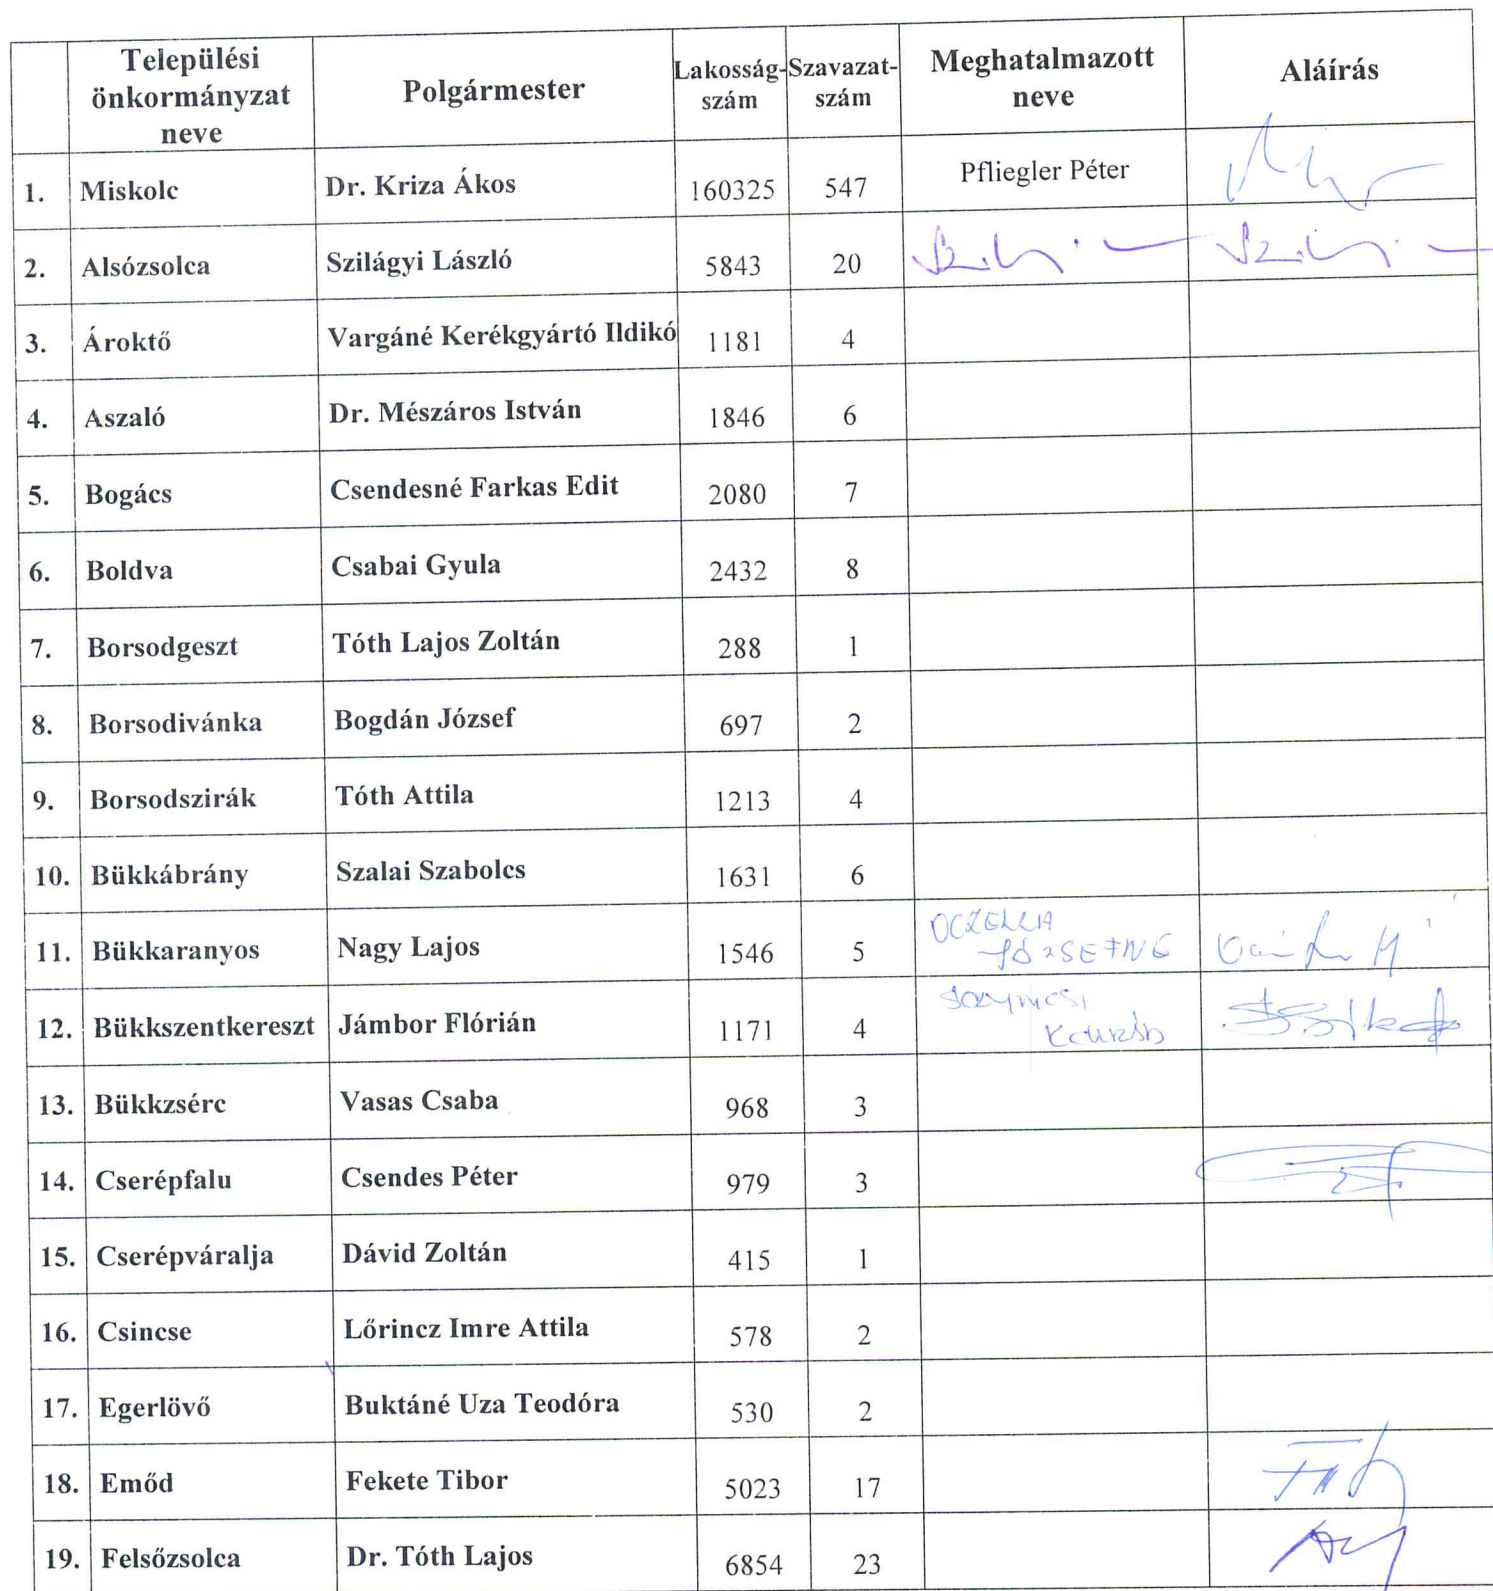 Települési önkormányzat neve Polgármester Lakosság-szám Szavazat-szám Meghatalmazott neve Aláírás
1. Miskolc Dr. Kriza Ákos 160325 547 Pfliegler Péter
2. Alsózsolca Szilágyi László 5843 20
3. Ároktő Vargáné Kerékgyártó Ildikó 1181 4
4. Aszaló Dr. Mészáros István 1846 6
5. Bogács Csendesné Farkas Edit 2080 7
6. Boldva Csabai Gyula 2432 8
7. Borsodgeszt Tóth Lajos Zoltán 288 1
8. Borsodivánka Bogdán József 697 2
9. Borsodszirák Tóth Attila 1213 4
10. Bükkábrány Szalai Szabolcs 1631 6
11. Bükkaranyos Nagy Lajos 1546 5
12. Bükkszentkereszt Jámbor Flórián 1171 4
13. Bükkzsérc Vasas Csaba 968 3
14. Cserépfalu Csendes Péter 979 3
15. Cserépváralja Dávid Zoltán 415 1
16. Csincse Lőrincz Imre Attila 578 2
17. Egerlövő Buktáné Uza Teodóra 530 2
18. Emőd Fekete Tibor 5023 17
19. Felsőzsolca Dr. Tóth Lajos 6854 23